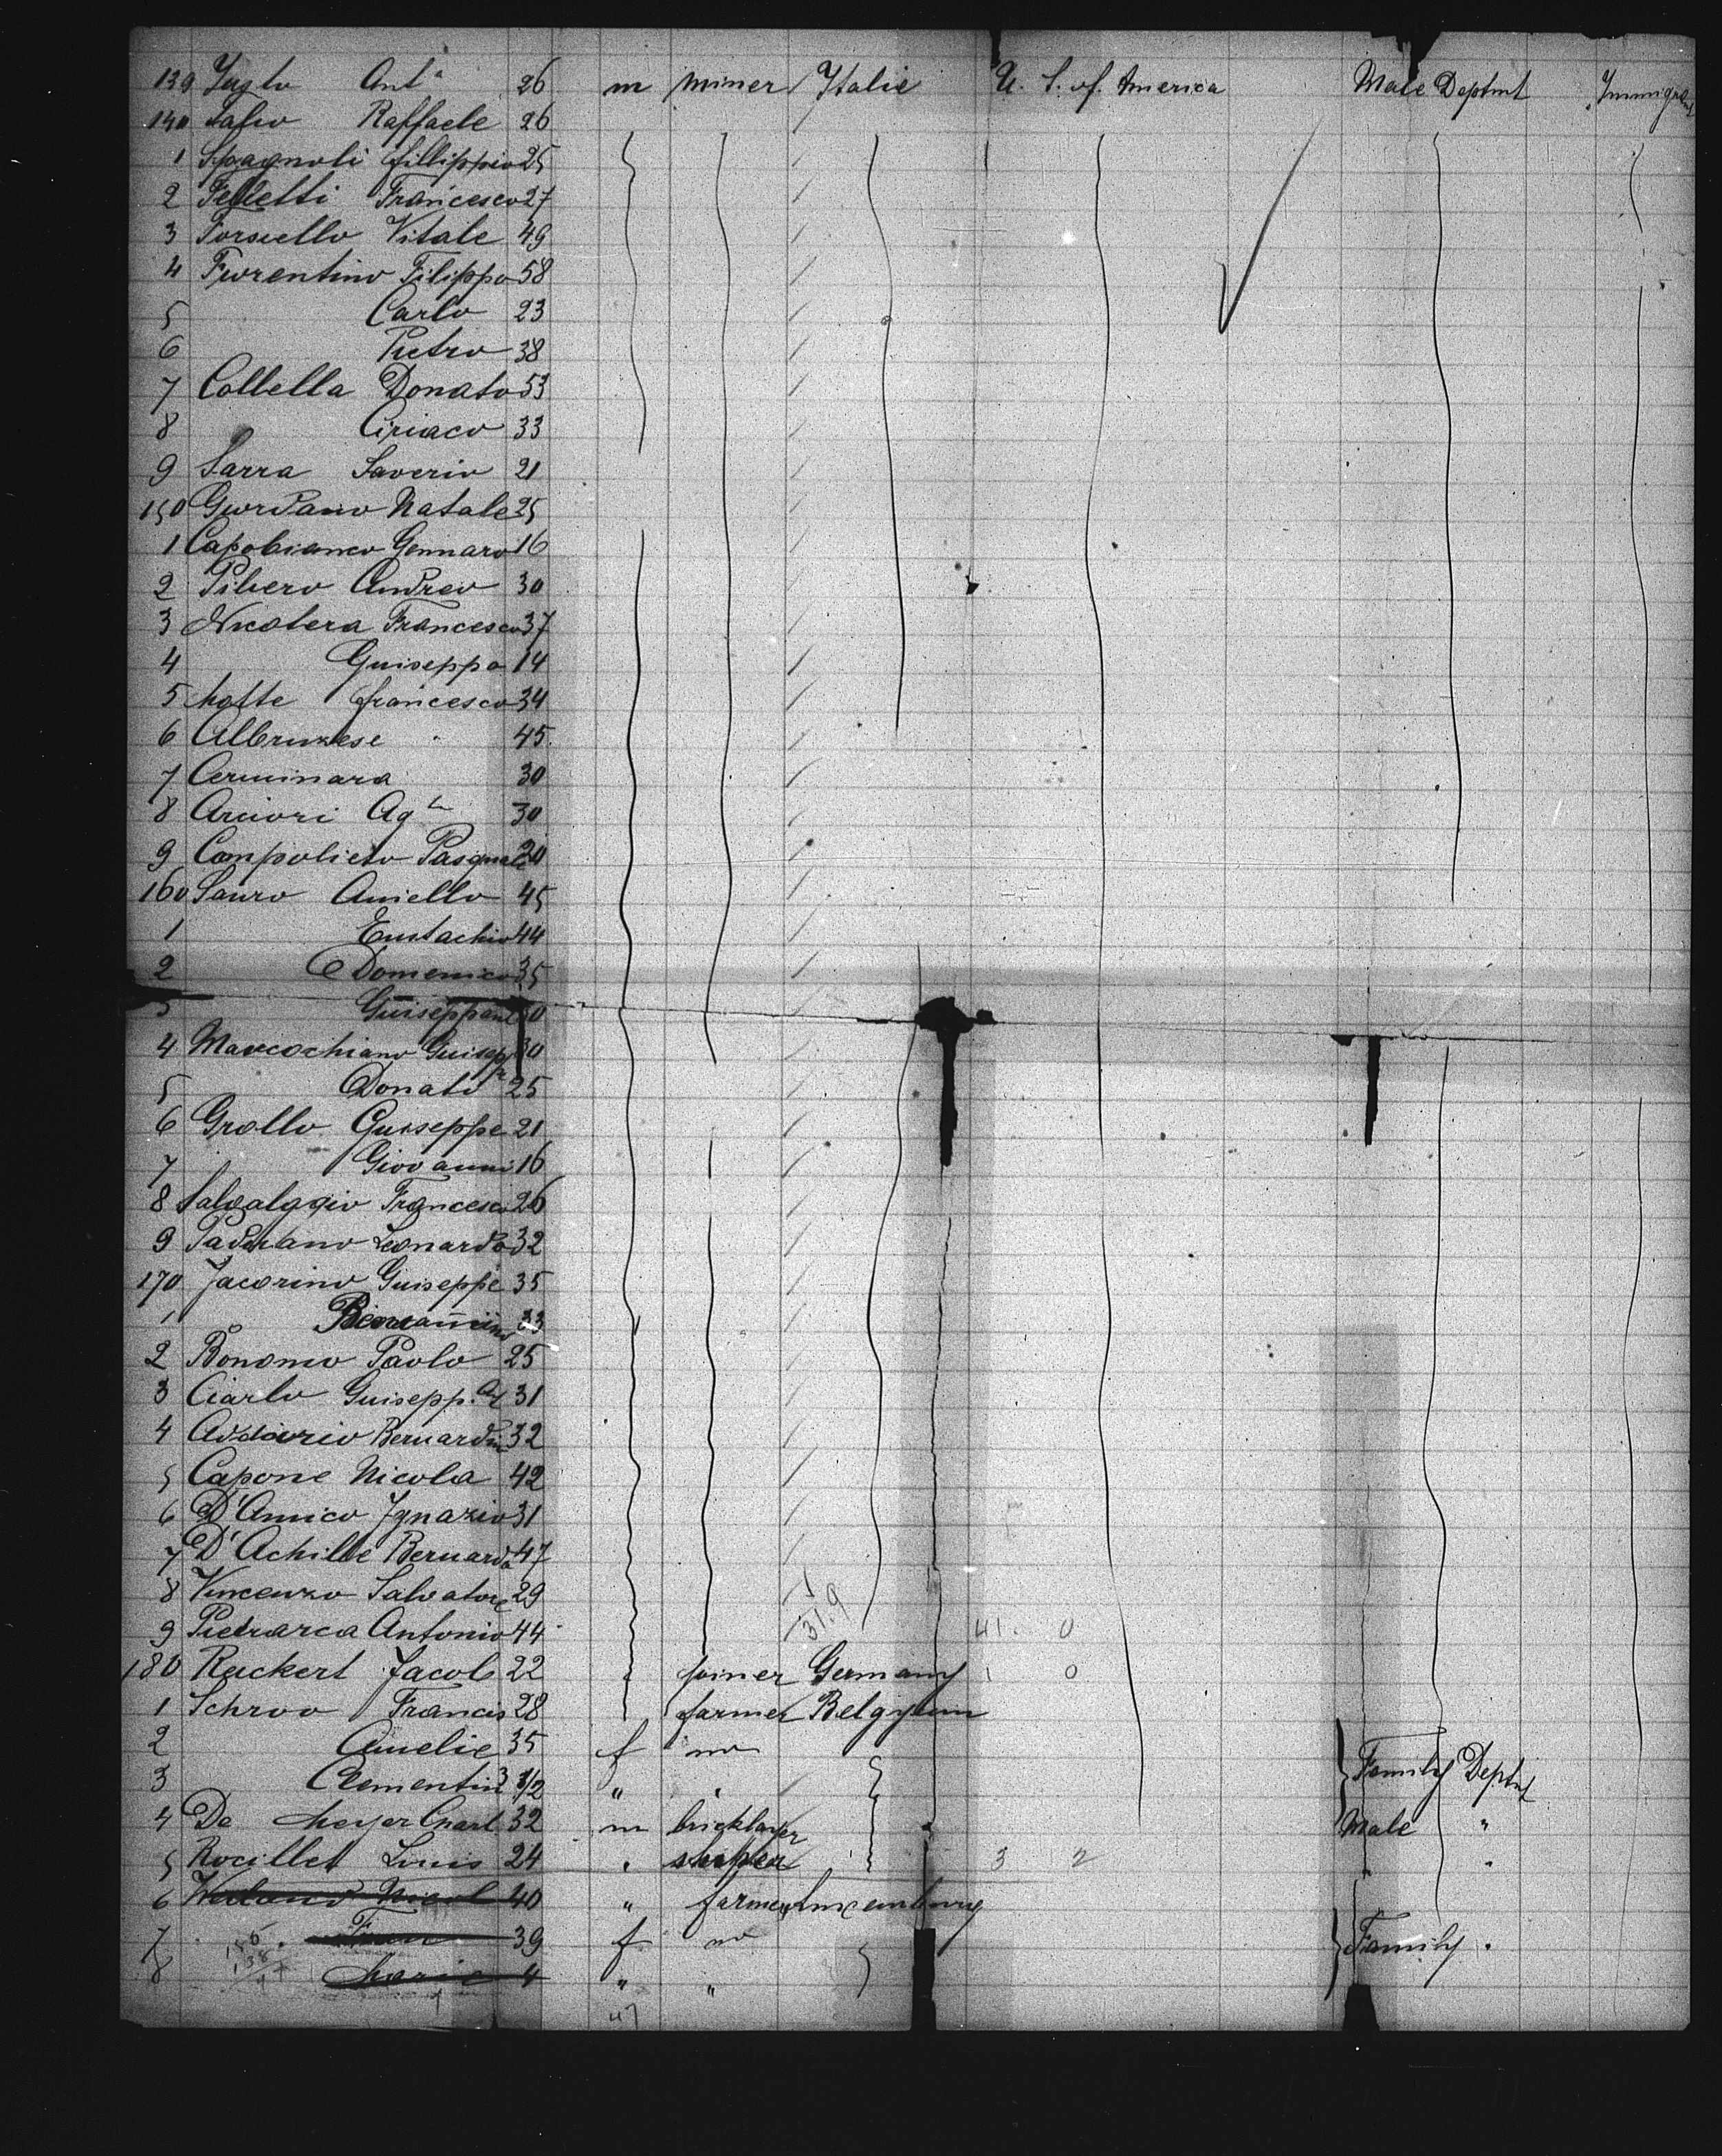 139 Ant.ª 26 m miner Italie U. S. of America Male Deptmt Immigrant
140 Raffaele 26
1 Spagnoli fillippio 25
2 Francesco 27
3 Vitale 49
4 Fiorentino Filippo 58
5 Carlo 23
6 Pietro 38
7 Colbella Donato 53
8 Ciriaco 33
9 Sarra Saverio 21
150 Giordano Natale 25
1 Capobianco Gennaro 16
2 Andreo 30
3 Nicotera Francesco 37
4 Guiseppo 14
5 francesco 34
6 Albruzese " 45
7 Cerminara 30
8 30
9 Campolieto Pasquale
160 Sauro Aniello 45
1 Eustachio 44
2 Domenico 35
Guiseppant
4 Guiseppe 30
5 Donato 25
6 Grollo Guiseppe 21
7 Giovanni 16
8 Francesco 26
9 Leonardo 32
170 Jacorino Guiseppe 35
1 33
2 Bonomo Paolo 25
3 Ciarlo Guisepp. 31
4 Addario Bernardin 32
5 Capone Nicola 42
6 D'Amico Ignazio 31
7 D'Achille Bernardo 47
8 Vincenzo Salvatore 29
9 Pietrarca Antonio 44 41. 0
180 Ruckert Jacob 22 joiner Germany 1 0
1 Schroo Francis 28 farmer Belgium
2 Amelie 35 f no Family Deptmt
3 Clementin " "
4 De Meyer Charl. 32 m bricklayer Male "
5 Louis 24 " 3 2 "
6 40 " farmer Luxemburg
7 39 f no Family "
8 Marie 4 " "
47